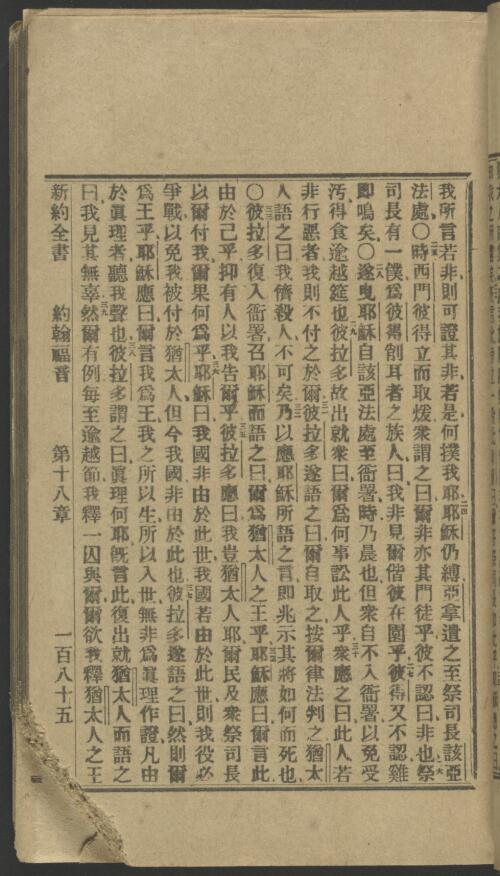 我所言若非則可證其非若是何撲我耶二四耶穌仍縛亞拿遣之至祭司長該亞
法處○二五時西門彼得立而取煖衆謂之曰爾非亦其門徒乎彼不認曰非也二六祭
司長有一僕爲彼得削耳者之族人曰我非見爾偕彼在園乎二七彼得又不認雞
卽鳴矣○二八遂曳耶穌自該亞法處至衙署時乃晨也但衆自不入衙署以免受
汚得食逾越筵也二九彼拉多故出就衆曰爾爲何事訟此人乎三十衆應之曰此人若
非行惡者我則不付之於爾三一彼拉多遂語之曰爾自取之按爾律法判之猶太
人語之曰我儕殺人不可矣三二乃以應耶穌所語之言卽兆示其將如何而死也
○三三彼拉多復入衙署召耶穌而語之曰爾爲猶太人之王乎三四耶穌應曰爾言此
由於己乎抑有人以我告爾乎三五彼拉多應曰我豈猶太人耶爾民及衆祭司長
以爾付我爾果何爲乎三六耶穌曰我國非由於此世我國若由於此世則我役必
爭戰以免我被付於猶太人但今我國非由於此也三七彼拉多遂語之曰然則爾
爲王乎耶穌應曰爾言我爲王我之所以生所以入世無非爲眞理作證凡由
於眞理者聽我聲也三八彼拉多謂之曰眞理何耶旣言此復出就猶太人而語之
曰我見其無辜三九然爾有例每至逾越節我釋一囚與爾爾欲我釋猶太人之王
新約全書　約翰福音　第十八章　一百八十五